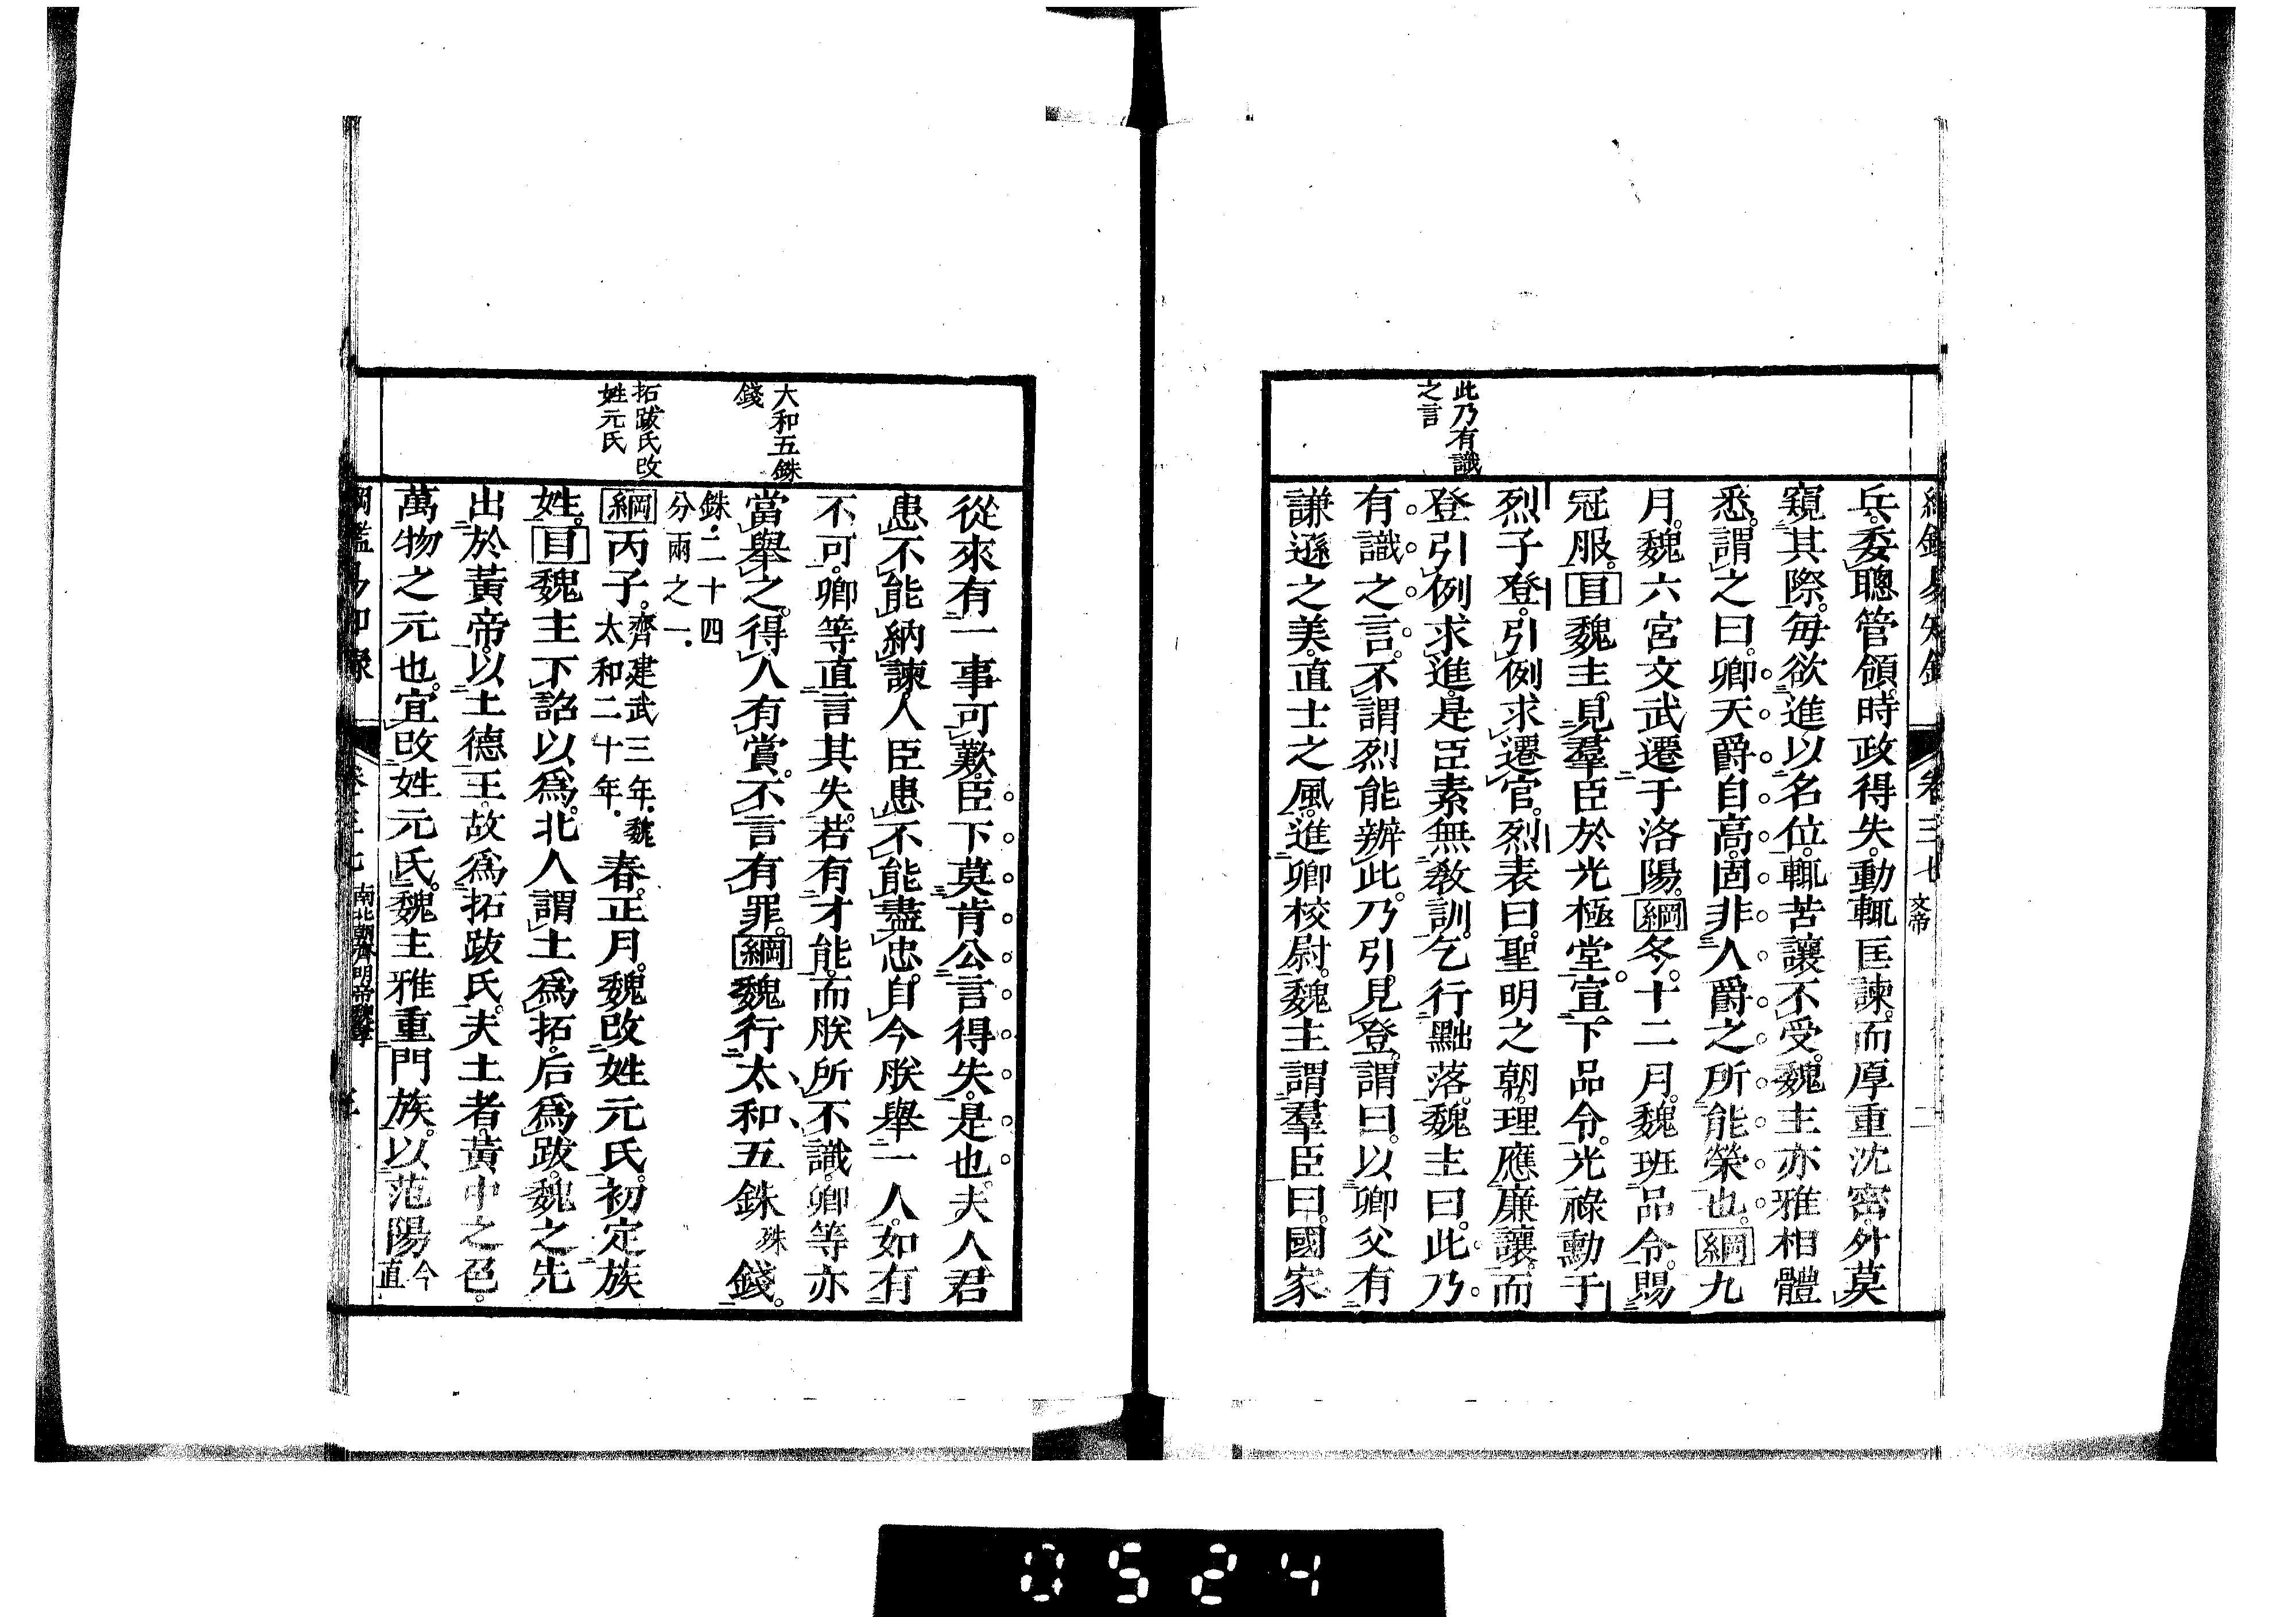 此乃有識
之言
兵委聰管領時政得失動輒匡諫而厚重沈密外莫
窺其際每欲進以名位輒苦讓不受魏主亦雅相體
悉謂之曰卿天爵自高固非人爵之所能榮也綱九
月魏六宮文武遷于洛陽綱冬十二月魏班品令賜
冠服目魏主見羣臣於光極堂宣下品令光祿勳于
烈子登引例求遷官烈表曰聖明之朝理應廉讓而
登引例求進是臣素無教訓乞行黜落魏主曰此乃
有識之言不謂烈能辦此乃引見登謂曰以卿父有
謙遜之美直士之風進卿校尉魏主謂羣臣曰國家
大和五銖
錢
拓跋氏改
姓元氏
從來有一事可歎臣下莫肯公言得失是也夫人君
患不能納諫人臣患不能盡忠自今朕舉一人如有
不可卿等直言其失若有才能而朕所不識卿等亦
當舉之得人有賞不言有罪綱魏行太和五銖殊錢
銖二十四
分兩之一
綱丙子齊建武三年魏太和二十年春正月魏改姓元氏初定族
姓目魏主下詔以爲北人謂土爲拓后爲跋魏之先
出於黃帝以土德王故爲拓跋氏夫土者黃中之色
萬物之元也宜改姓元氏魏主雅重門族以范陽今直
卷三七
南北朝齊明帝